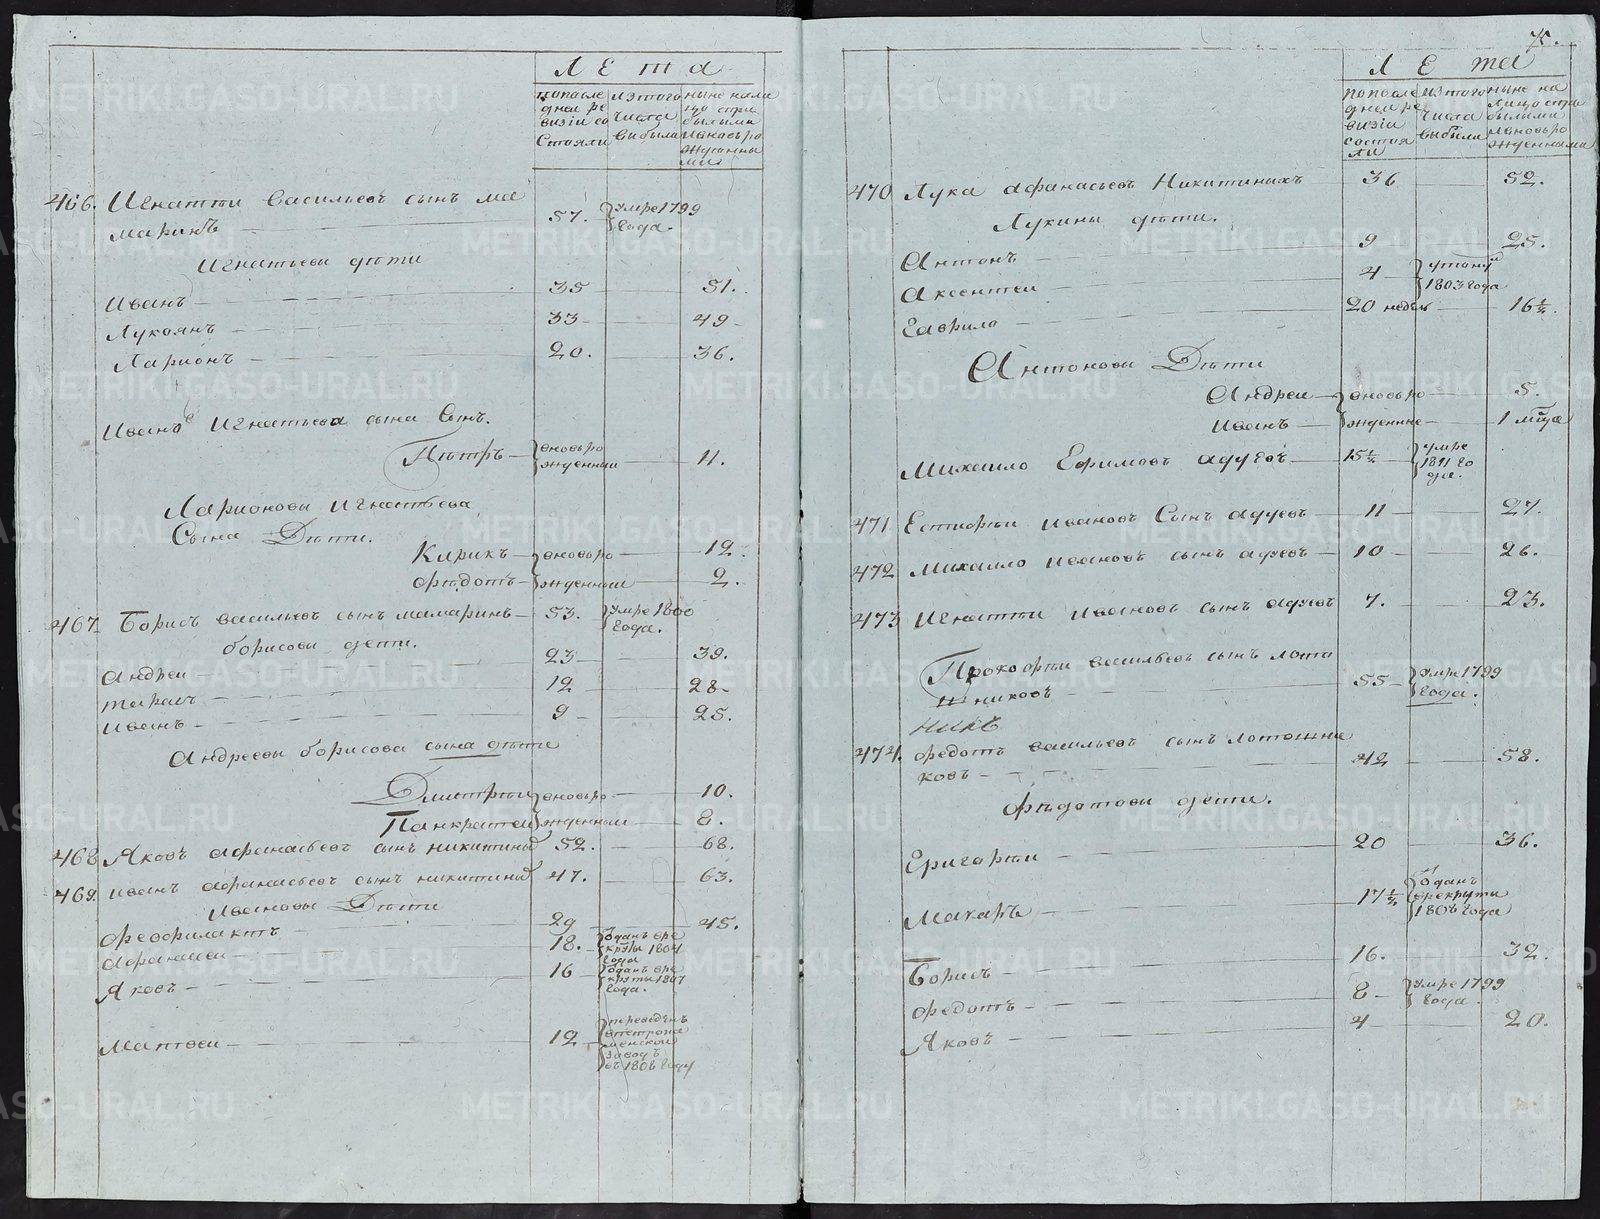 Лѣта
попосле
дней ре
визiи со
стояли
изтого
числа
выбыло
ныне нали
цо спри
былыми
иноворо
жденны
ми
466. Игнатiи васильевъ сынъ ма
маринъ 57. умре 1799
года.
Игнатьевы дѣти
Иванъ 35 51.
Лукоянъ 33 49
Ларионъ 20. 36.
Ивана Игнатьева сына сынъ.
Пѣтръ вновьро
жденныи 11.
Ларионовы игнатьева
сына Дѣти.
Кирикъ вновьро 12.
Фѣдотъ жденныи 2.
467. Борисъ васильевъ сынъ мамаринъ 53. умре 1800
года.
борисовы дети.
Андреи 23 39.
тарасъ 12 28.
иванъ 9 25.
Андреевы борисова сына дѣти
Дмитрiи вновьро 10.
Панкратеи жденныи 8.
468 Яковъ афанасьевъ сынъ никитиныхъ 52. 68.
469. иванъ афанасьевъ сынъ никитиныхъ 47. 63.
Ивановы Дѣти
Феофилактъ 29 45.
Афанасеи 18. Отданъ вре
круты 1804
года
Яковъ 16 Отданъ вре
круты 1807
года.
Матвеи 12 переведѣнъ
впетрока
менскои
заводъ
въ 1808 году
75.
Лѣта
попосле
дней ре
визiи
состоя
ли
изтого
числа
выбыли
ныне на
лицо спри
былыми
иноворо
жденными
470 Лука афанасьевъ Никитиныхъ 36 52.
Лукины дѣти.
Антонъ 9 25.
Аксентеи 4 утонулъ
1803 года
Гаврило 20 недель 16½
Антоновы Дѣти
Андреи вновьро 5.
иванъ жденные 1 мѣца
Михаило Ефимовъ адуевъ 15½ умре
1811 го
да.
471 Естифѣи ивановъ Сынъ адуевъ 11 27.
472 Михаило ивановъ сынъ адуевъ 10 26.
473 Игнатiи ивановъ сынъ адуевъ 7. 23.
Прокофѣи васильевъ сынъ лото
шниковъ 55 умре 1799
года.
никъ
474. Федотъ васильевъ сынъ лотошни
ковъ 42 58.
Фѣдотовы дети.
Григорѣи 20 36.
Макаръ 17½ Отданъ
врекруты
1808 года
Борисъ 16. 32.
Федотъ 8 умре 1799
года.
Яковъ 4 20.
METRIKI.GASO-URAL.RU